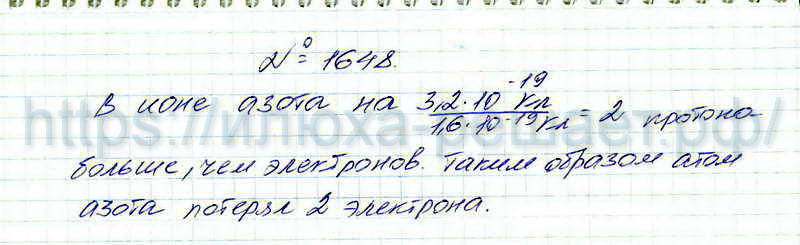 № 1648.
В ионе азота на 3,2·10⁻¹⁹ Кл / 1,6·10⁻¹⁹ Кл = 2 протона
больше, чем электронов. Таким образом атом
азота потерял 2 электрона.